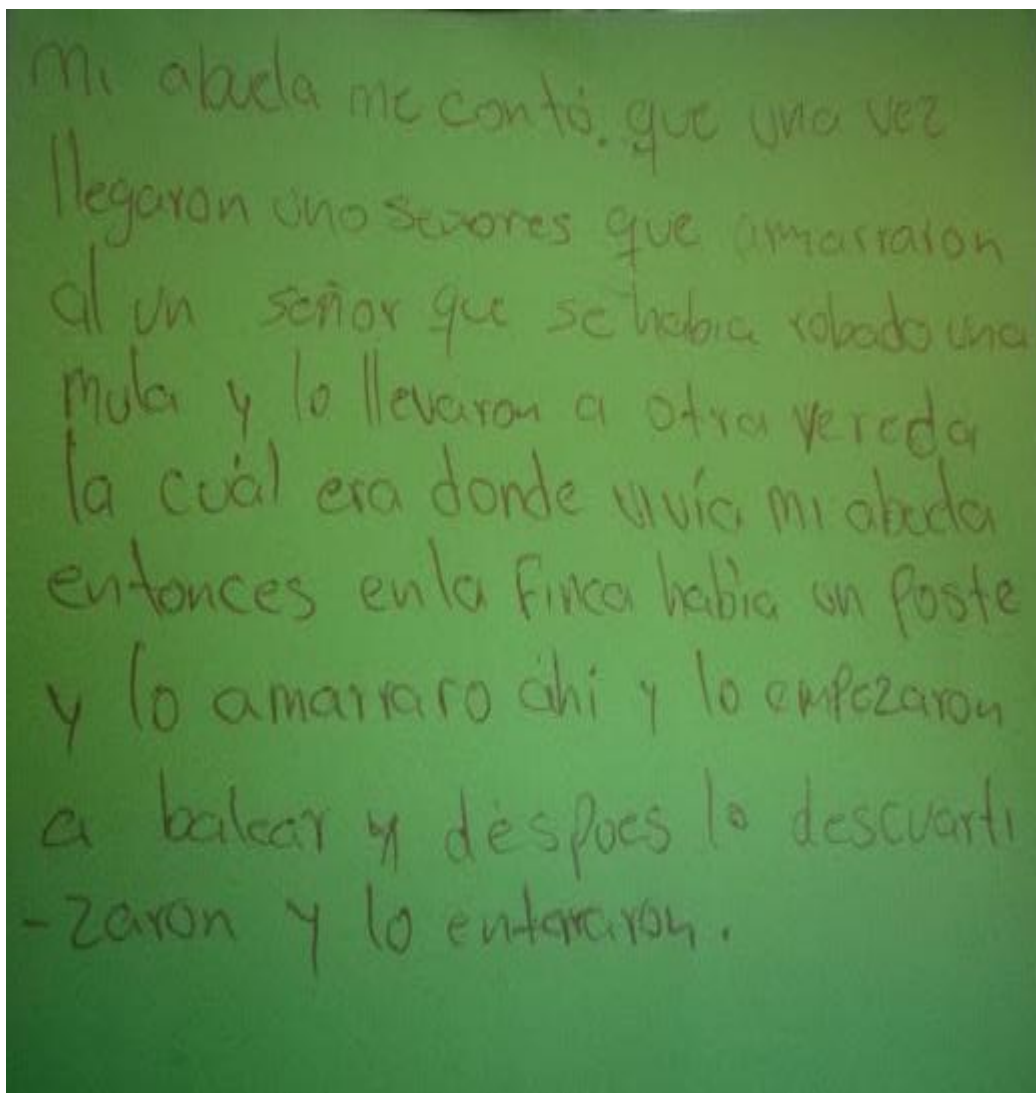 Mi abuela me contó. que una vez
llegaron uno señores que amarraron
al un señor que se habia robado una
mula y lo llevaron a otra vereda
la cuál era donde vivía mi abuela
entonces en la finca había un poste
y lo amarraro ahi y lo empezaron
a balear y déspues lo descuarti
-zaron y lo entararon.